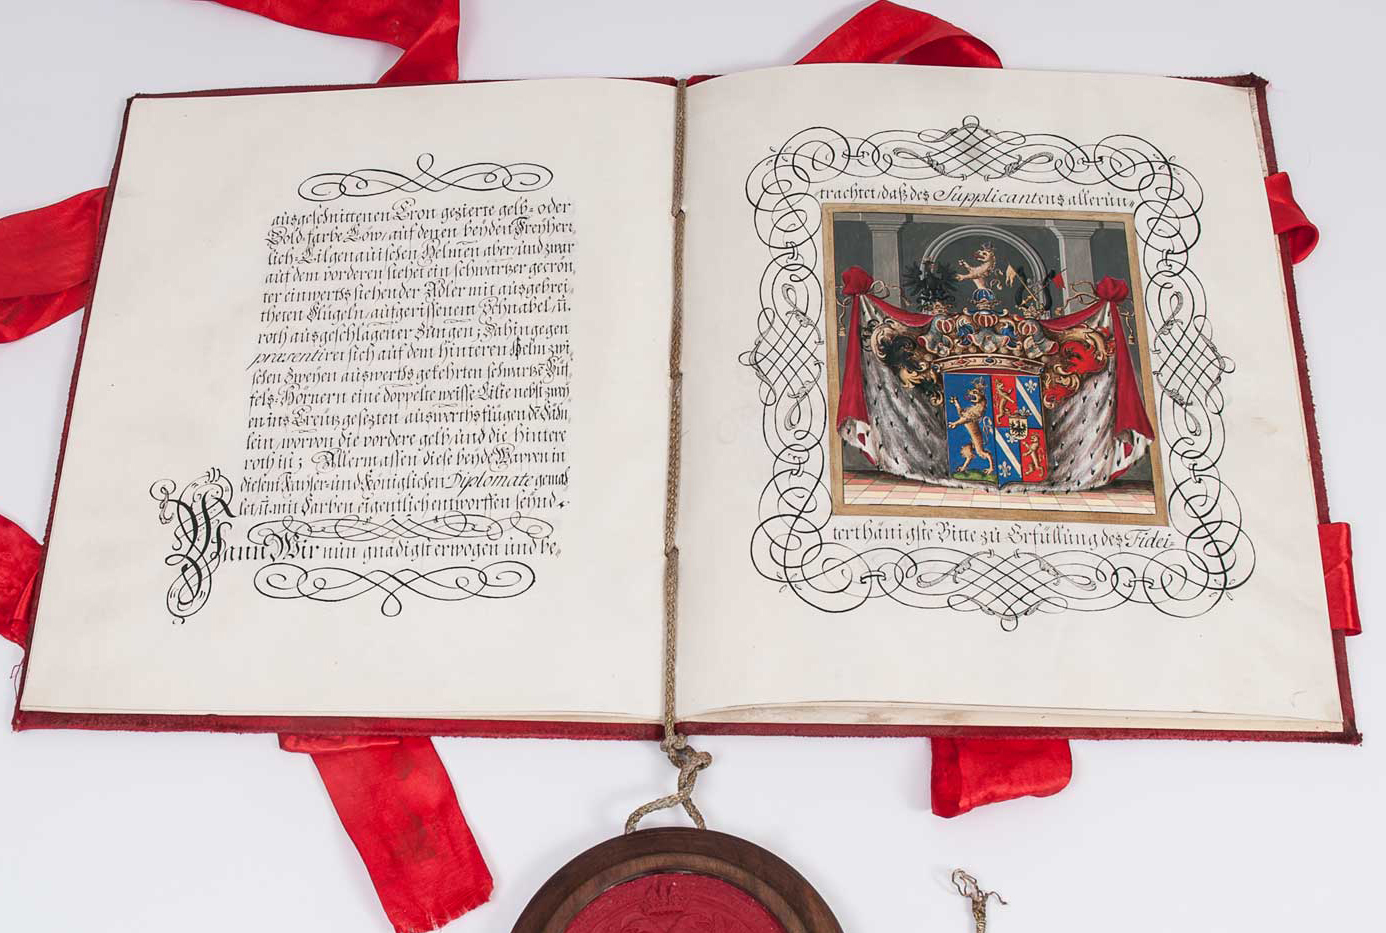 ausgeschnittenen Cron gezierte gelb- oder
Gold farbe Löw, auf denen beyden Freyherr,
lich-Lilgenauischen Helmen aber, und zwar
auf dem vorderen stehet ein schwartzer gecrön,
ter einwerths stehender Adler mit ausgebrei,
theten Flügeln, aufgerissenem Schnabel, u.
roth ausgeschlagener Zungen; Dahingegen
præsentiret sich auf dem hinteren Helm zwi,
schen zweyen auswerths gekehrten schwartze Büf,
fels-Hörnern eine doppelte weisse Lilie nebst zwey
en ins Creütz gesezten auswerths flügende Fähn,
lein, worvon die vordere gelb, und die hintere
roth ist; Allermassen diese beyde Wappen in
diesem Kayser- und Königlichen Diplomate gemah
let, u. mit Farben eigentlich entworffen seynd.
Wann Wir nun gnädigst erwogen und be,
trachtet, daß des Supplicantens allerun,
terthänigste Bitte zu Erfüllung des Fidei-